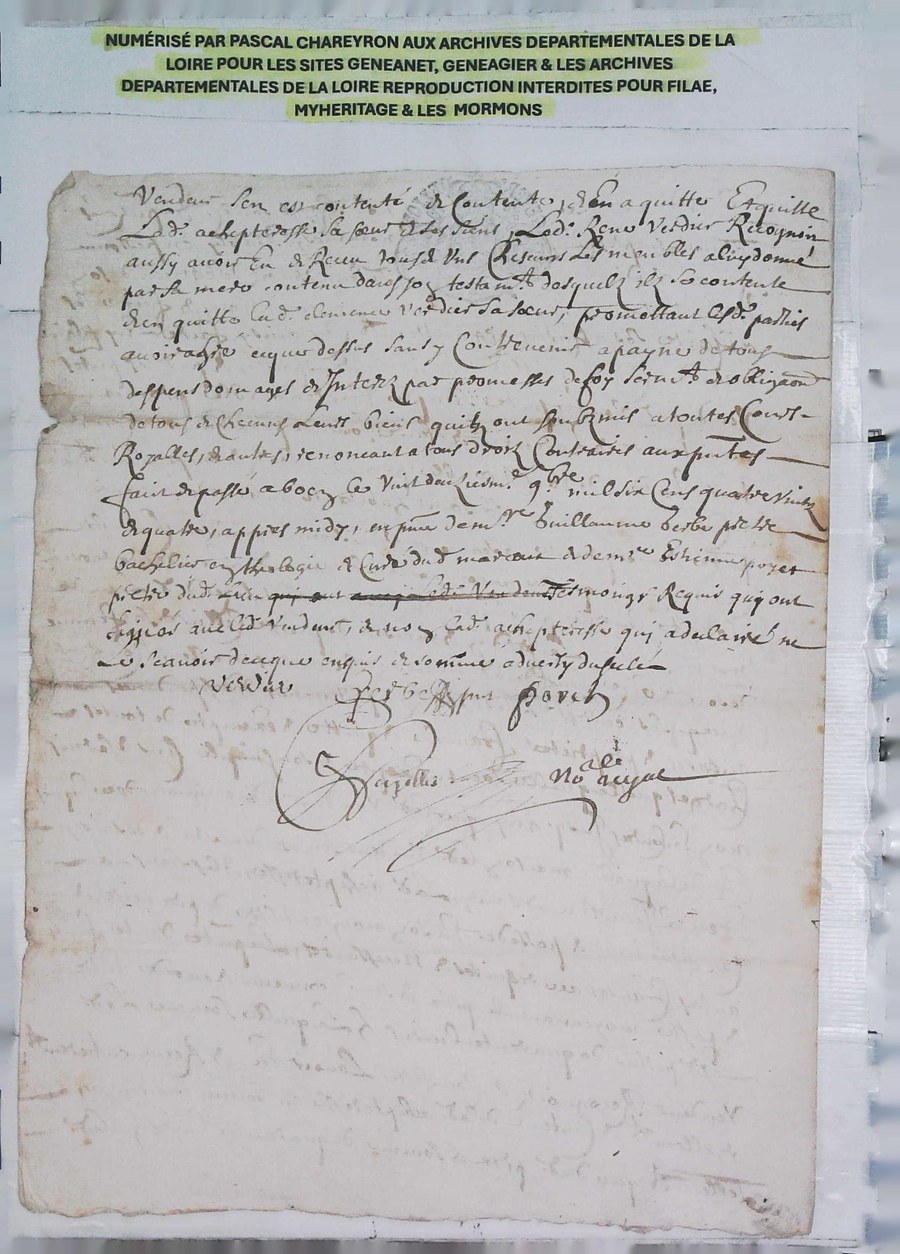 NUMÉRISÉ PAR PASCAL CHAREYRON AUX ARCHIVES DEPARTEMENTALES DE LA
LOIRE POUR LES SITES GENEANET, GENEAGIER & LES ARCHIVES
DEPARTEMENTALES DE LA LOIRE REPRODUCTION INTERDITES POUR FILAE,
MYHERITAGE & LES MORMONS
Vendeur sen est contenté & contente, & en a quitte Et quitte
Lad. achepteresse sa sœur & les siens, Led. Rene Verdier Recognoit
aussy avoir Eu & Receu les meubles a luy donné
par sa mere contenu dans son testamt desquelz il se contente
& en quitte lad. clemence Verdier sa sœur, promettant lesd. parties
avoir agree ce que dessus sans y Contrevenir a payne de tous
despens domages & Interez par promesses de foy sermt & obligaon
de tous & Chacuns Leurs biens quilz ont soubzmis a toutes Cours
Royalles, & autres, renoncant a tous droiz Contraires aux pntes
faict & passé a boen Le vint deuxiesme 9bre mil six Cens quatre vintz
& quatre, appres midy, en pnce de mre Guillaume prebtre
bachelier en theologie & Curé dud & de mre Estienne
prebtre dud. Lieu tesmoings Requis quy ont
signés avec led. Vendeur, & non lad. achepteresse quy a declairé ne
Le scavoir de ce que enquis & somme
Verdier
Noale royal